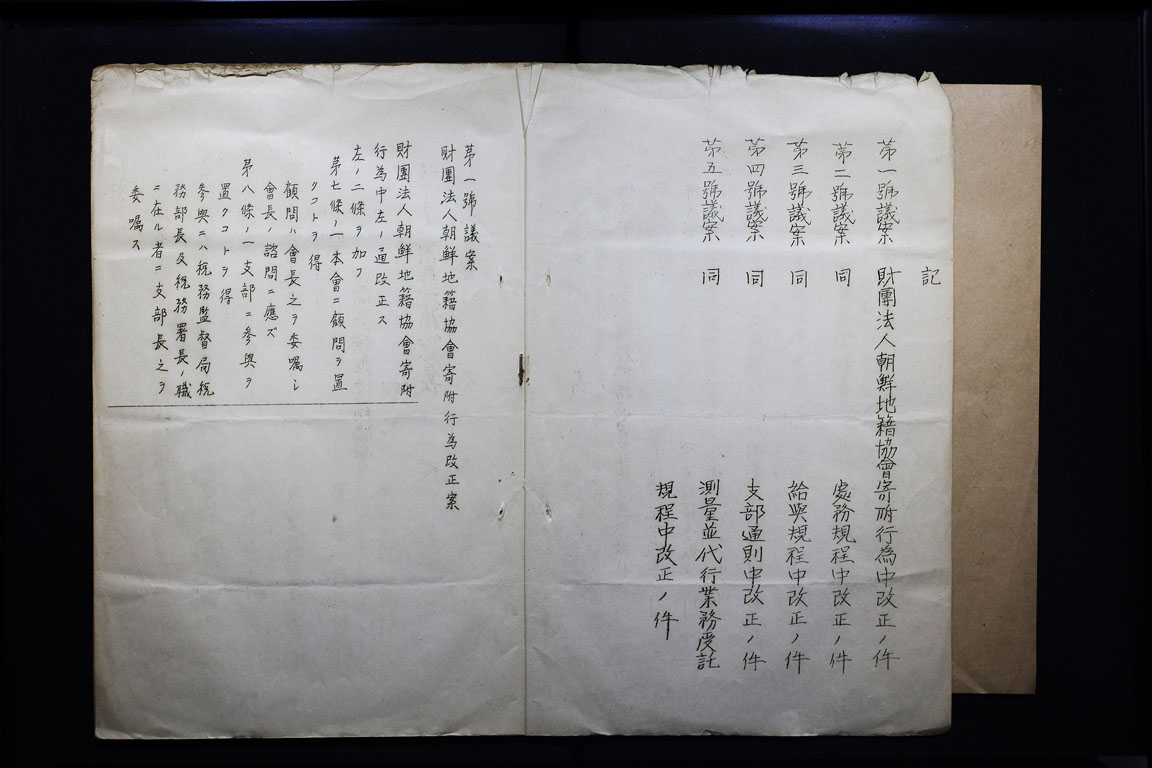 記
第一號議案 財團法人朝鮮地籍協會寄附行為中改正ノ件
第二號議案 同 處務規程中改正ノ件
第三號議案 同 給與規程中改正ノ件
第四號議案 同 支部通則中改正ノ件
第五號議案 同 測量並代行業務受託
規程中改正ノ件
第一號議案
財團法人朝鮮地籍協會寄附行為改正案
財團法人朝鮮地籍協會寄附
行為中左ノ通改正ス
左ノ二條ヲ加フ
第七條ノ一 本會ニ顧問ヲ置
クコトヲ得
顧問ハ會長之ヲ委嘱シ
會長ノ諮問ニ應ズ
第八條ノ一 支部ニ參與ヲ
置クコトヲ得
參與ニハ税務監督局税
務部長及税務署長ノ職
ニ在ル者ニ支部長之ヲ
委嘱ス